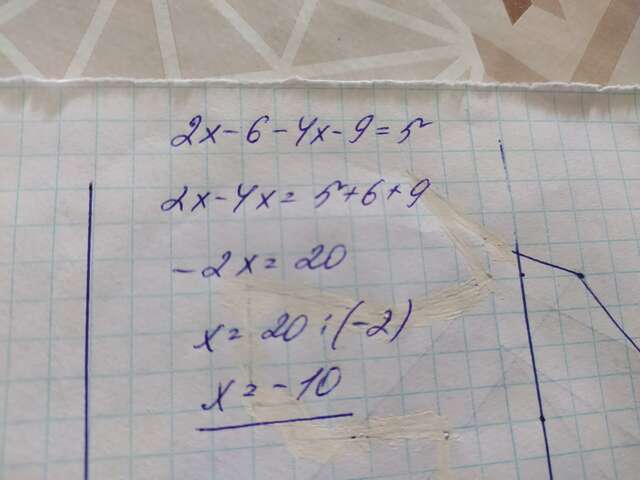 2x-6-4x-9=5
2x-4x=5+6+9
-2x=20
x=20:(-2)
x=-10